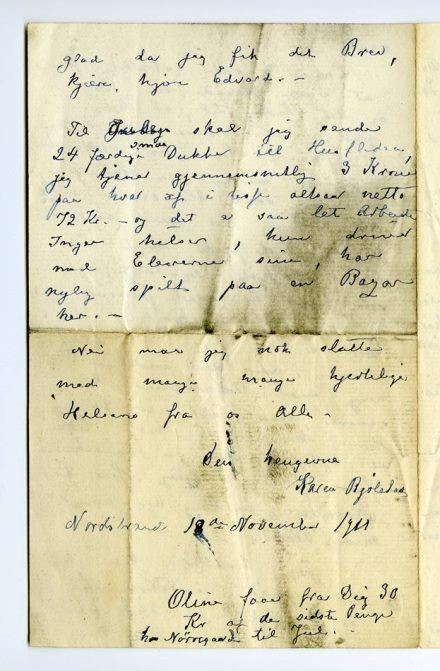 glad da jeg fik det Brev,
kjære, kjære Edvard. –
Til skal jeg sende
små
24 færdige Dukker til Husfliden,
jeg tjener gjennemsnitlig 3 Kroner
paa hver altsaa netto
72 Kr. – og det er saa let Arbeide
Inger hilser, hun driver
med Eleverne sine, har
nylig spilt paa en Bazar
her. –
Nei maa jeg nok slutte
med mange mange hjertelige
Hilsener fra os Alle –
Din hengivne
Karen Bjølstad
Nordstrand 18de November 1911
Oline faar fra Dig 30
Kr af de sidste Penge
hos Nörregaard til Jul. –